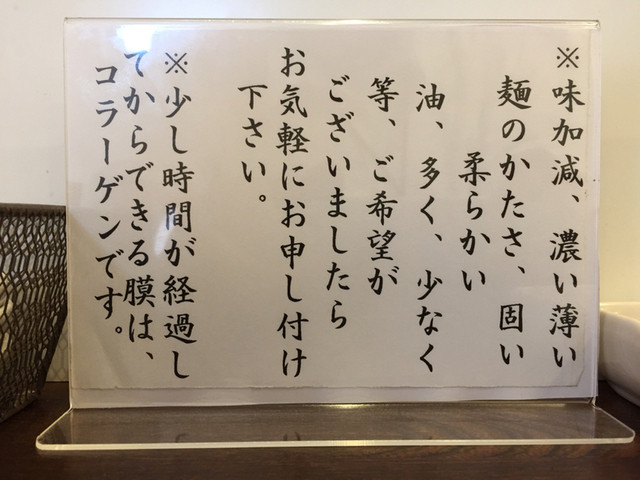 ※味加減、濃い薄い
麺のかたさ、固い
柔らかい
油、多く、少なく
等、ご希望が
ございましたら
お気軽にお申し付け
下さい。
※少し時間が経過し
てからできる膜は、
コラーゲンです。